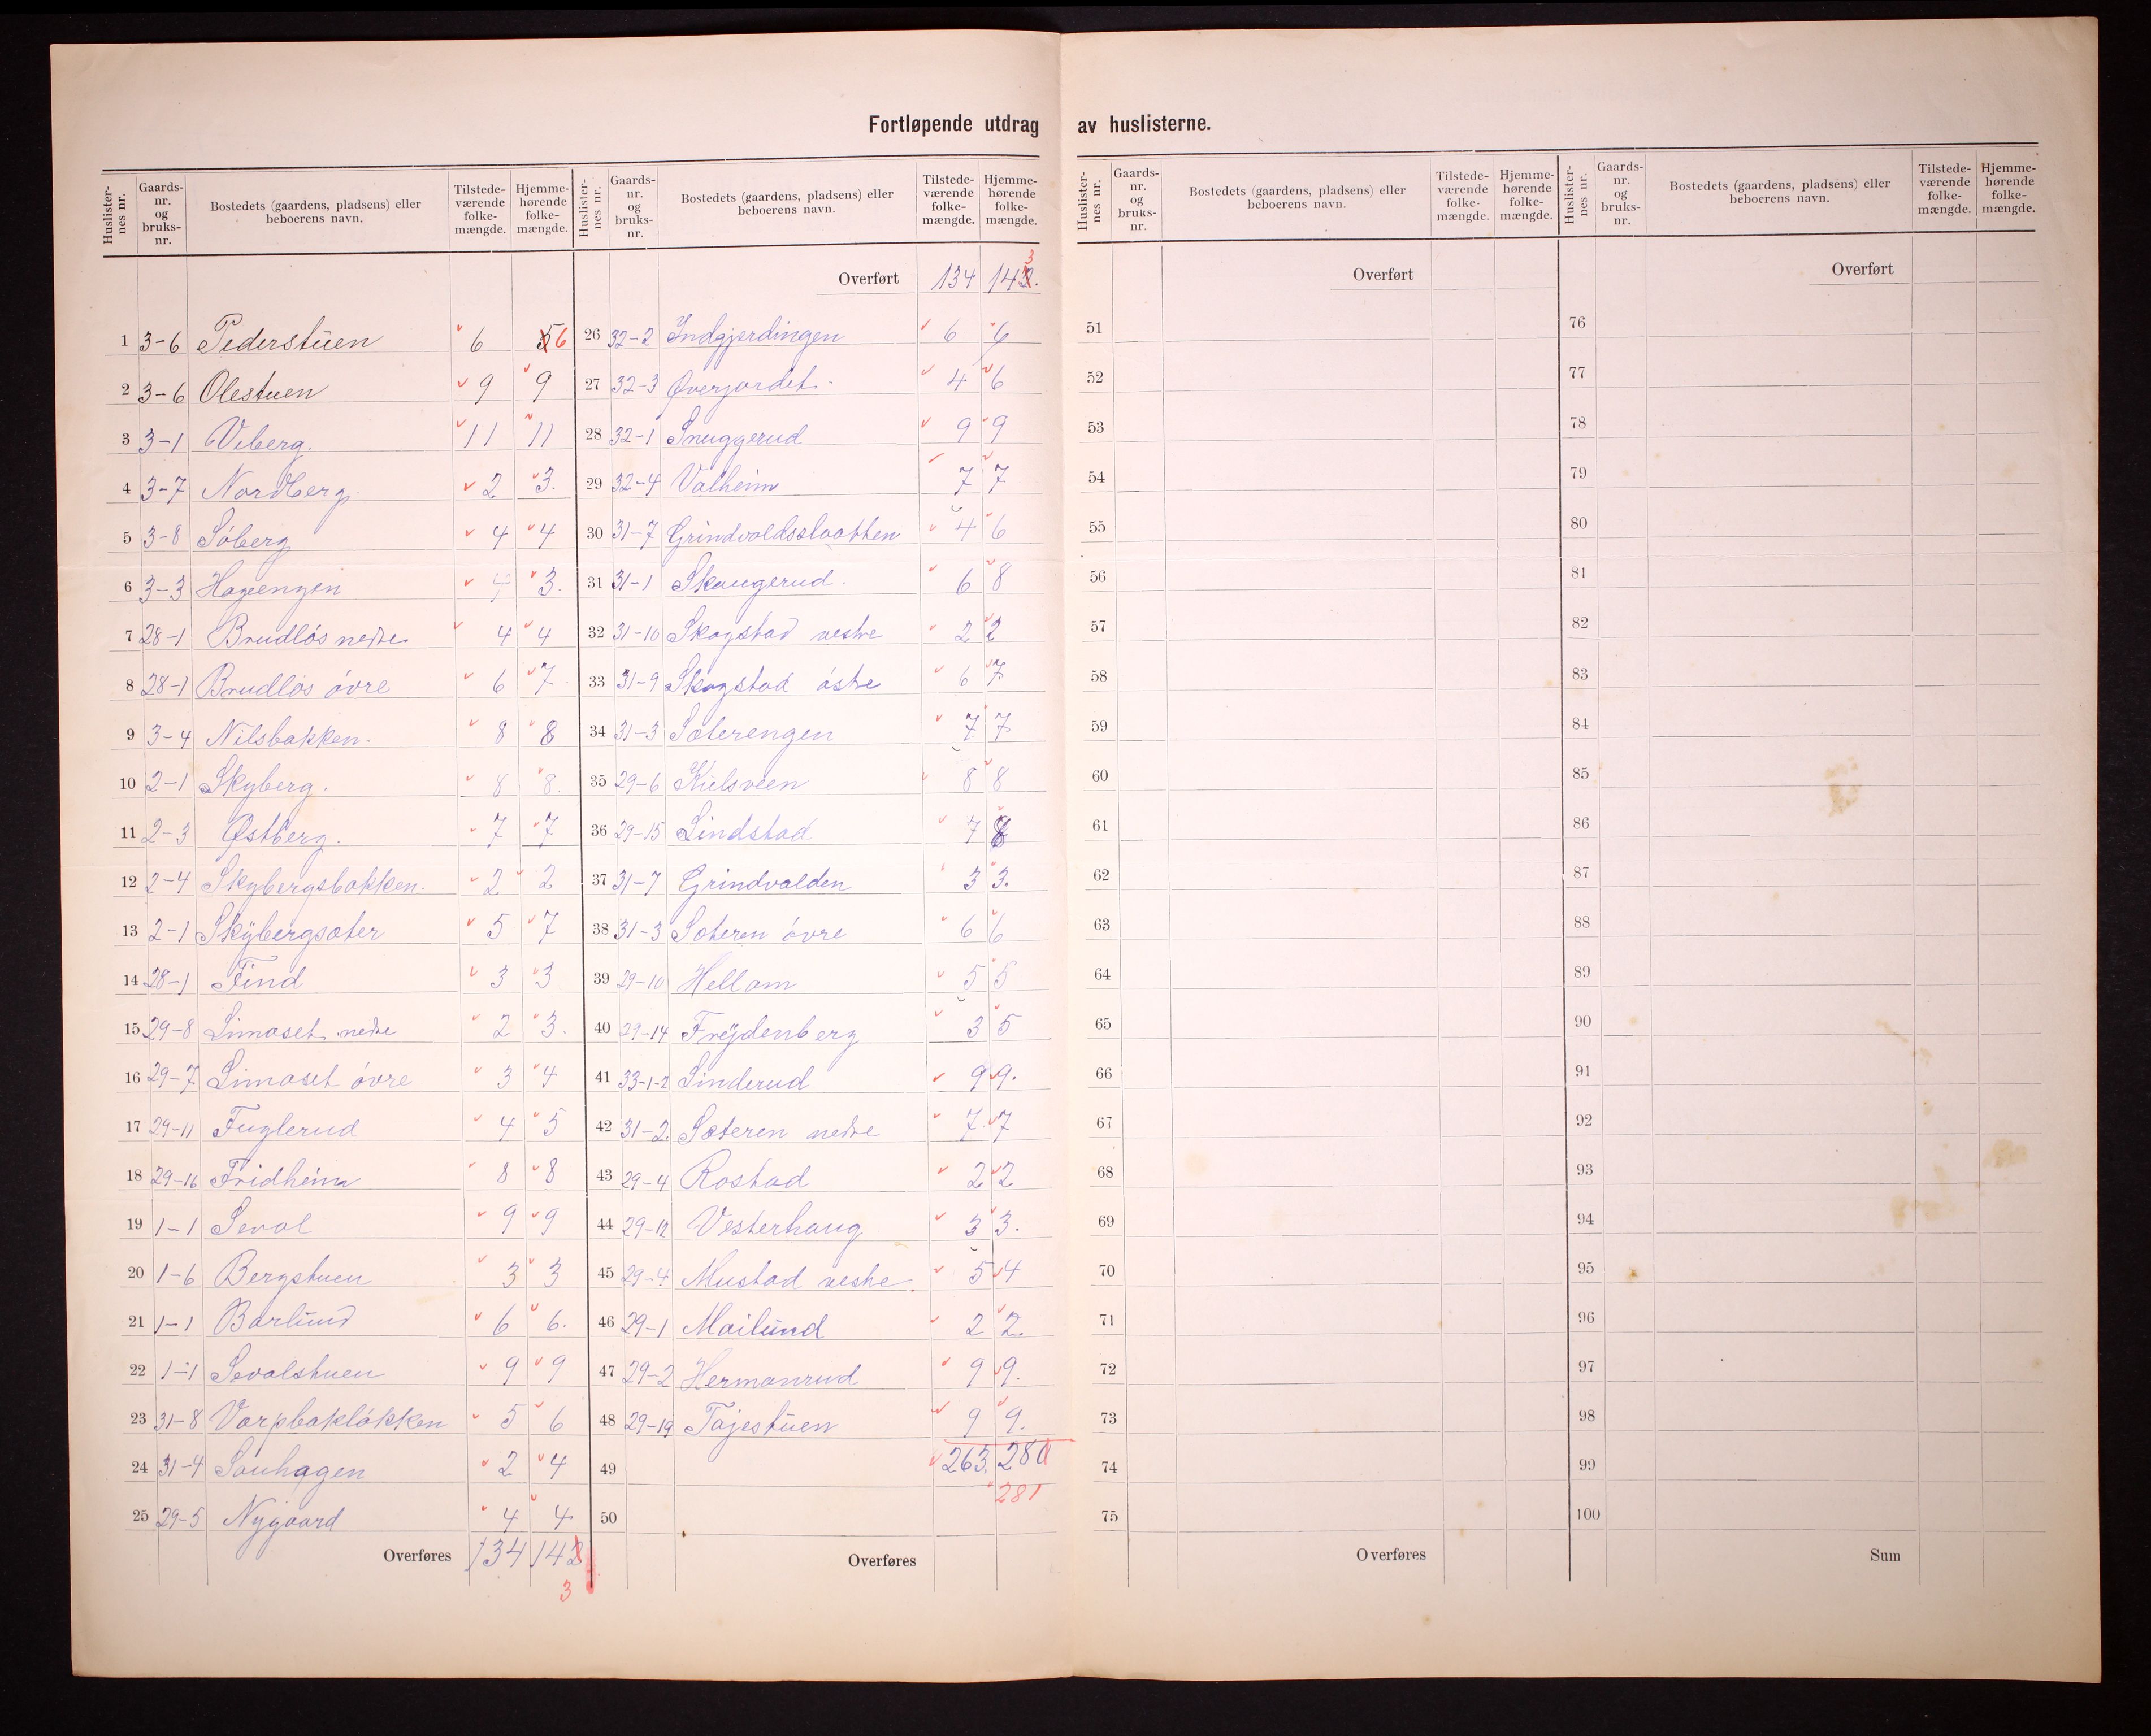 Fortløpende utdrag av huslisterne.
Huslisternes nr. Gaards-nr. og bruks-nr. Bostedets (gaardens, pladsens) eller beboerens navn. Tilstedeværende folkemængde. Hjemmehørende folkemængde.
1 3-6 Pederstuen 6 5 6
2 3-6 Olestuen 9 9
3 3-1 Viberg. 11 11
4 3-7 Nordberg 2 3.
5 3-8 Söberg 4 4
6 3-3 Hageengen 4 3.
7 28-1 Brudlös nedre 4 4
8 28-1 Brudlös övre 6 7
9 3-4 Nilsbakken. 8 8
10 2-1 Skyberg. 8 8.
11 2-3 Østberg. 7 7
12 2-4 Skybergsbakken. 2 2
13 2-1 Skybergsæter 5 7
14 28-1 Find 3 3
15 29-8 Limoset nedre 2 3.
16 29-7 Limoset övre 3 4
17 29-11 Fuglerud 4 5
18 29-16 Fridheim 8 8
19 1-1 Seval 9 9
20 1-6 Bergstuen 3 3
21 1-1 Barlund 6 6.
22 1-1 Sevalstuen 9 9
23 31-8 Varpbaklökken 5 6
24 31-4 Sauhagen 2 4
25 29-5 Nygaard 4 4
Overføres 134 142
3
Huslisternes nr. Gaards-nr. og bruks-nr. Bostedets (gaardens, pladsens) eller beboerens navn. Tilstedeværende folkemængde. Hjemmehørende folkemængde.
Overført 134 142. 3
26 32-2 Indgjerdingen 6 6
27 32-3 Øverjordet. 4 6
28 32-1 Snuggerud 9 9
29 32-4 Valheim 7 7
30 31-7 Grindvoldsslaatten 4 6
31 31-1 Skaugerud. 6 8
32 31-10 Skogstad vestre 2 2
33 31-9 Skogstad östre 6 7
34 31-3 Sæterengen 7 7
35 29-6 Kielsveen 8 8
36 29-15 Lindstad 7 8
37 31-7 Grindvolden 3 3.
38 31-3 Sæteren övre 6 6
39 29-10 Hellom 5 5
40 29-14 Frÿdenberg 3 5
41 33-1-2 Linderud 9 9.
42 31-2. Sæteren nedre 7 7
43 29-4 Rostad 2 2
44 29-12 Vesterhaug 3 3.
45 29-4 Mustad vestre. 5 4
46 29-1 Mailund 2 2.
47 29-2 Hermanrud 9 9.
48 29-19 Tajestuen 9 9.
49 263. 280
281
50
Overføres
Huslisternes nr. Gaards-nr. og bruks-nr. Bostedets (gaardens, pladsens) eller beboerens navn. Tilstedeværende folkemængde. Hjemmehørende folkemængde.
Overført
51
52
53
54
55
56
57
58
59
60
61
62
63
64
65
66
67
68
69
70
71
72
73
74
75
Overføres
Huslisternes nr. Gaards-nr. og bruks-nr. Bostedets (gaardens, pladsens) eller beboerens navn. Tilstedeværende folkemængde. Hjemmehørende folkemængde.
Overført
76
77
78
79
80
81
82
83
84
85
86
87
88
89
90
91
92
93
94
95
96
97
98
99
100
Sum